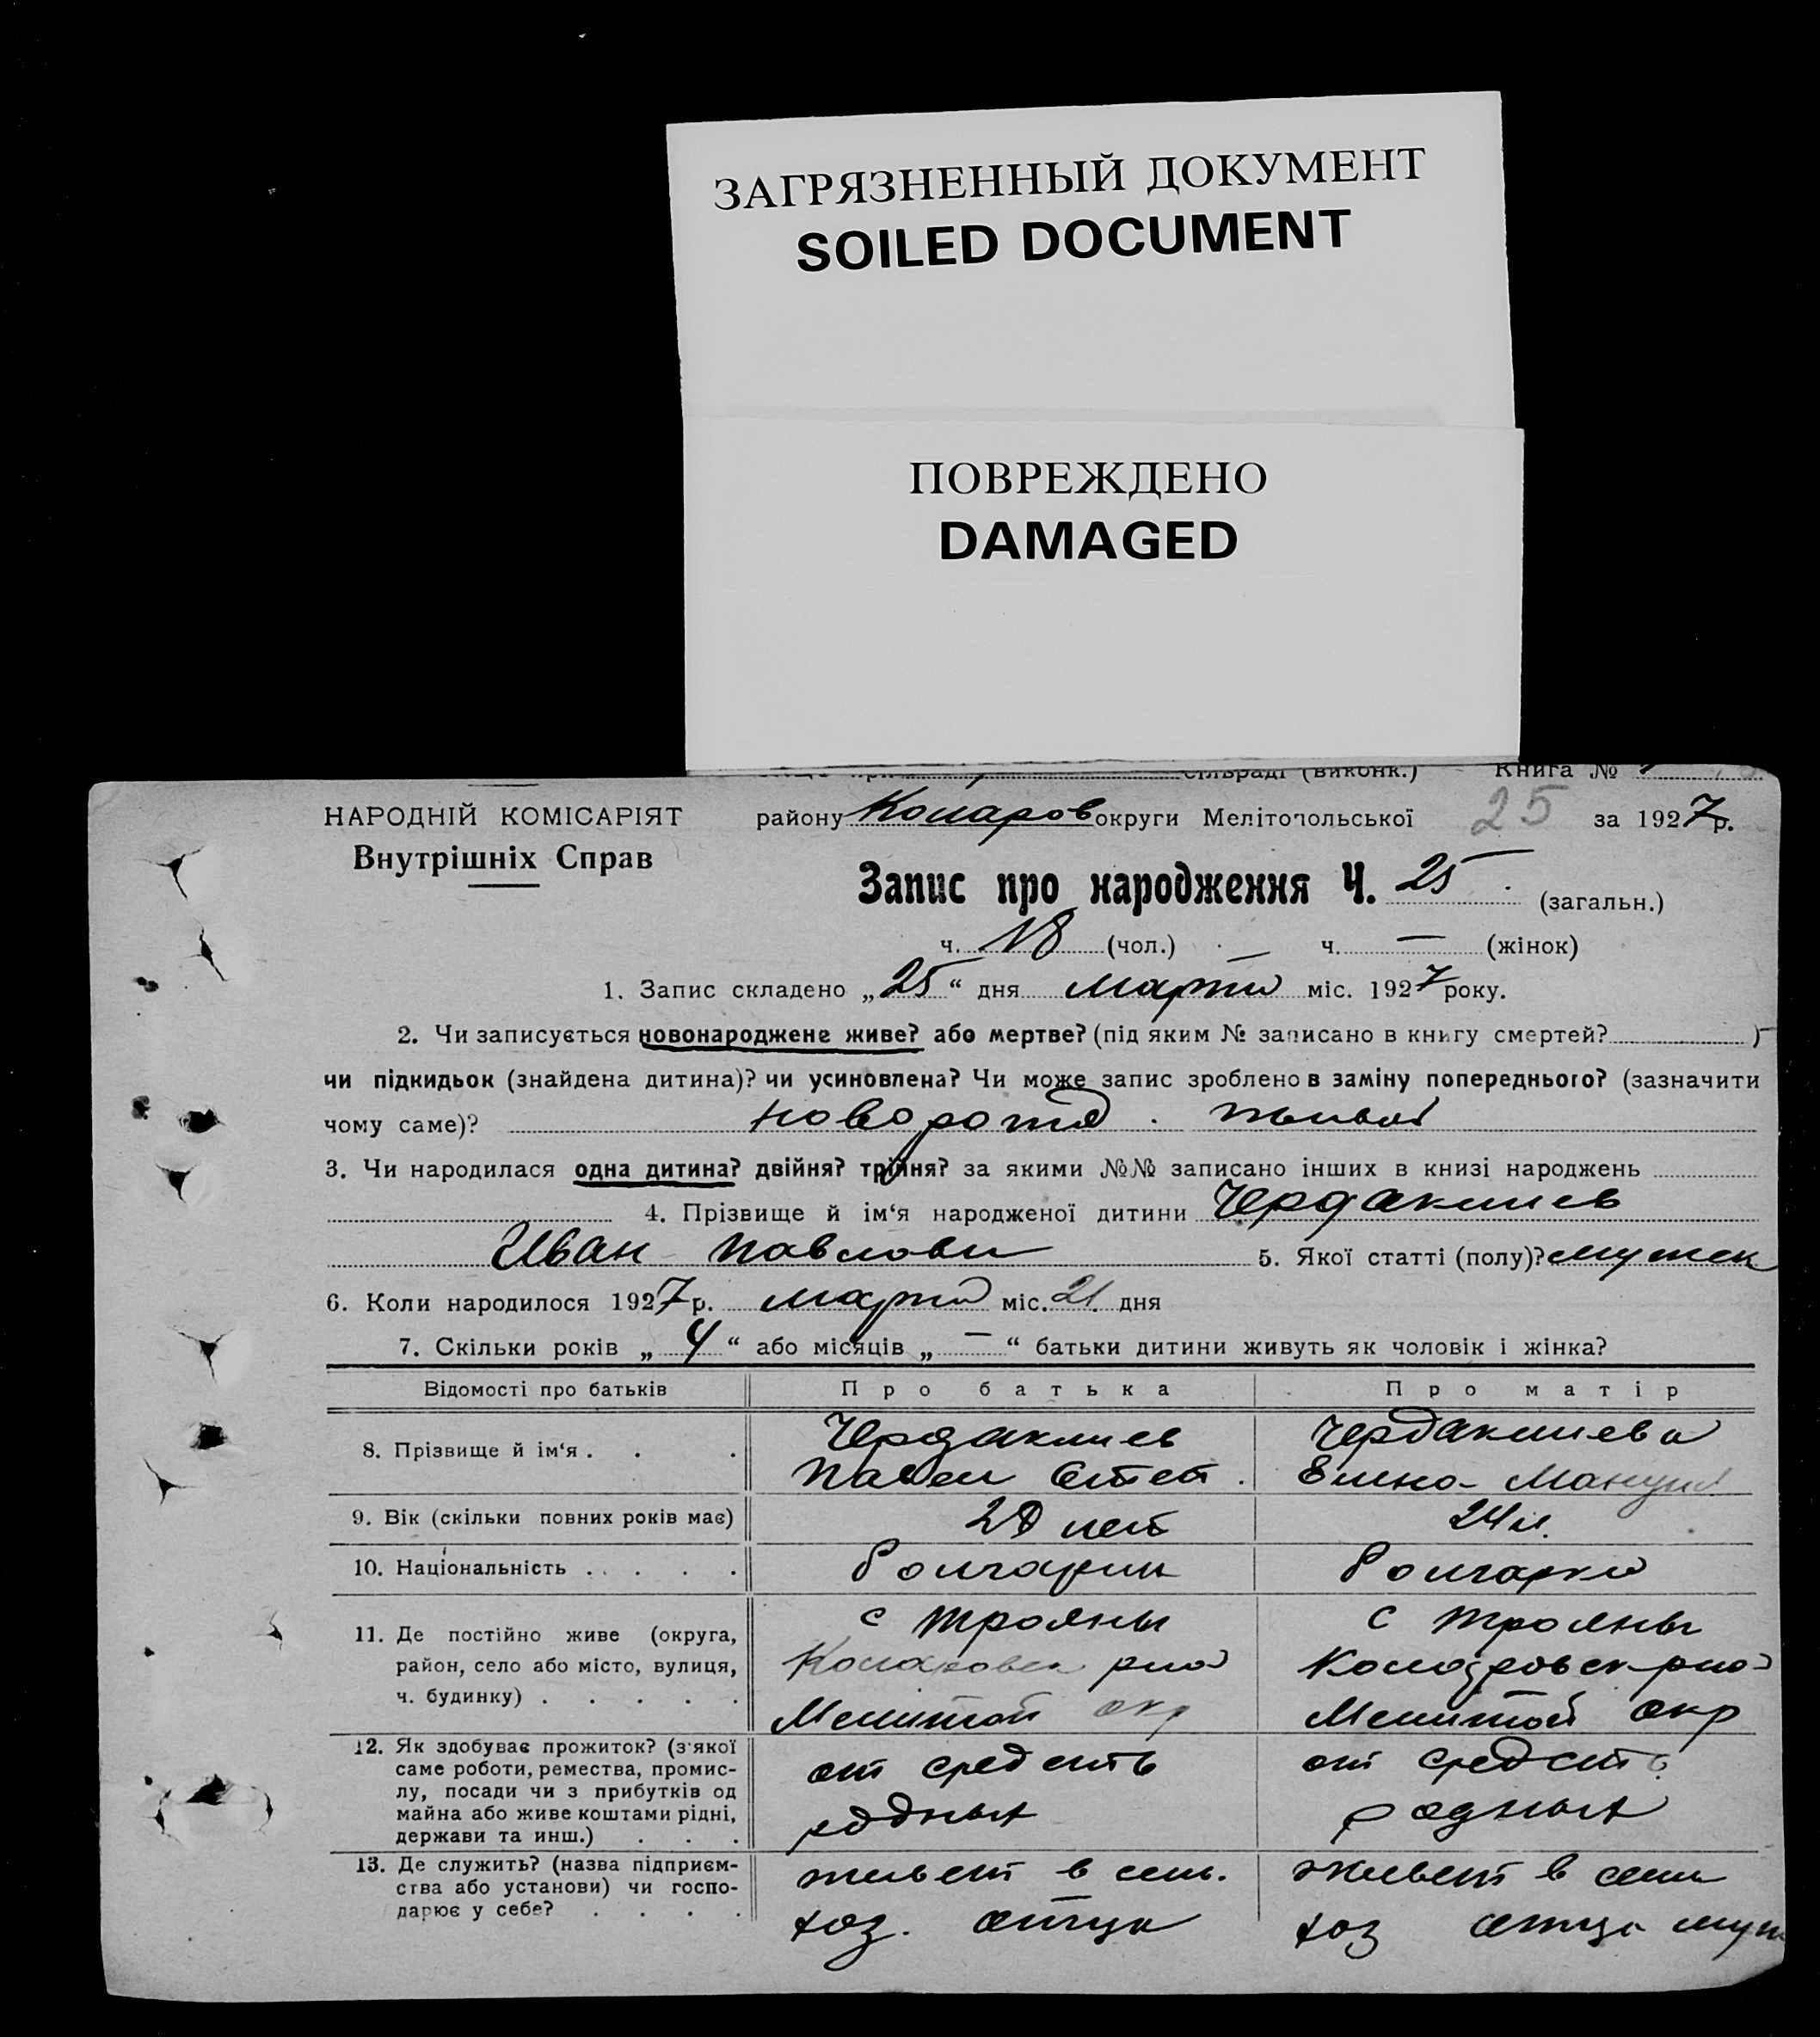 ЗАГРЯЗНЕННЫЙ ДОКУМЕНТ
SOILED DOCUMENT
ПОВРЕЖДЕНО
DAMAGED
сільраді (виконк.) Книга №
НАРОДНІЙ КОМІСАРІЯТ
Внутрішніх Справ
району Коларов округи Мелітопольської 25 за 1927 р.
Запис про народження Ч. 25 (загальн.)
ч. 18 (чол.) ч. — (жінок)
1. Запис складено „25“ дня марта міс. 1927 року.
2. Чи записується новонароджене живе? або мертве? (під яким № записано в книгу смертей? )
чи підкидьок (знайдена дитина)? чи усиновлена? Чи може запис зроблено в заміну попереднього? (зазначити
чому саме)? новорожд. живой
3. Чи народилася одна дитина? двійня? трійня? за якими №№ записано інших в книзі народжень
4. Прізвище й ім‘я народженої дитини Чердаклиев
Иван Павлови 5. Якої статті (полу)? мужск
6. Коли народилося 1927 р. марта міс. 21. дня
7. Скільки років „4“ або місяців „—“ батьки дитини живуть як чоловік і жінка?
Відомості про батьків Про батька Про матір
8. Прізвище й ім‘я . . . Чердаклиев Чердаклиева
Павел Степ. Елена Мануил
9. Вік (скільки повних років має) лет 24 л.
10. Національність . . . . . Болгарин Болгарка
11. Де постійно живе (округа, с Трояны с Трояны
район, село або місто, вулиця, Коларовск рна Коларовск рна
ч. будинку) . . . . . Мелитоп окр Мелитоп окр
12. Як здобуває прожиток? (з'якої
саме роботи, ремества, промис- от средств от средств
лу, посади чи з прибутків од
майна або живе коштами рідні, родных родных
держави та инш.) . . .
13. Де служить? (назва підприєм- живет в сель. живет в сель
ства або установи) чи госпо-
дарює у себе? . . . . хоз. отца хоз отца муж